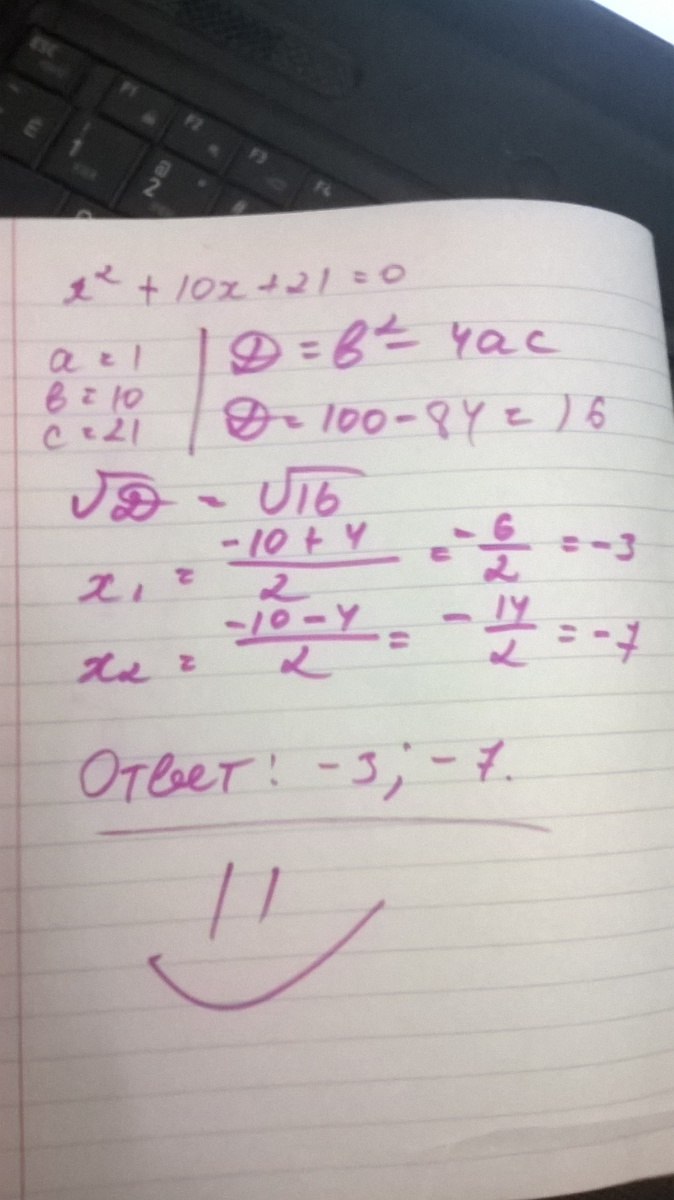 ESC
F1
F2
F3
F4
1
@
2
x² + 10x + 21 = 0
a = 1
в = 10
c = 21
D = в² - 4ac
D = 100 - 84 = 16
√D = √16
x₁ = (-10 + 4)/2 = -6/2 = -3
x₂ = (-10 - 4)/2 = -14/2 = -7
Ответ: -3; -7.